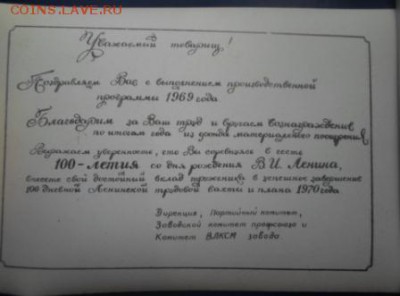 COINS.SU
Уважаемый товарищ!
Поздравляем Вас с выполнением производственной
программы 1969 года.
Благодарим за Ваш труд и вручаем вознаграждение
по итогам года из фонда материального поощрения
Выражаем уверенность, что Вы сумеете в честь
100-летия со дня рождения В.И. Ленина,
внести свой достойный вклад труженика в успешное завершение
100 дневной Ленинской трудовой вахты и плана 1970 года
Дирекция, Партийный комитет,
Заводской комитет профсоюза и
Комитет ВЛКСМ завода.